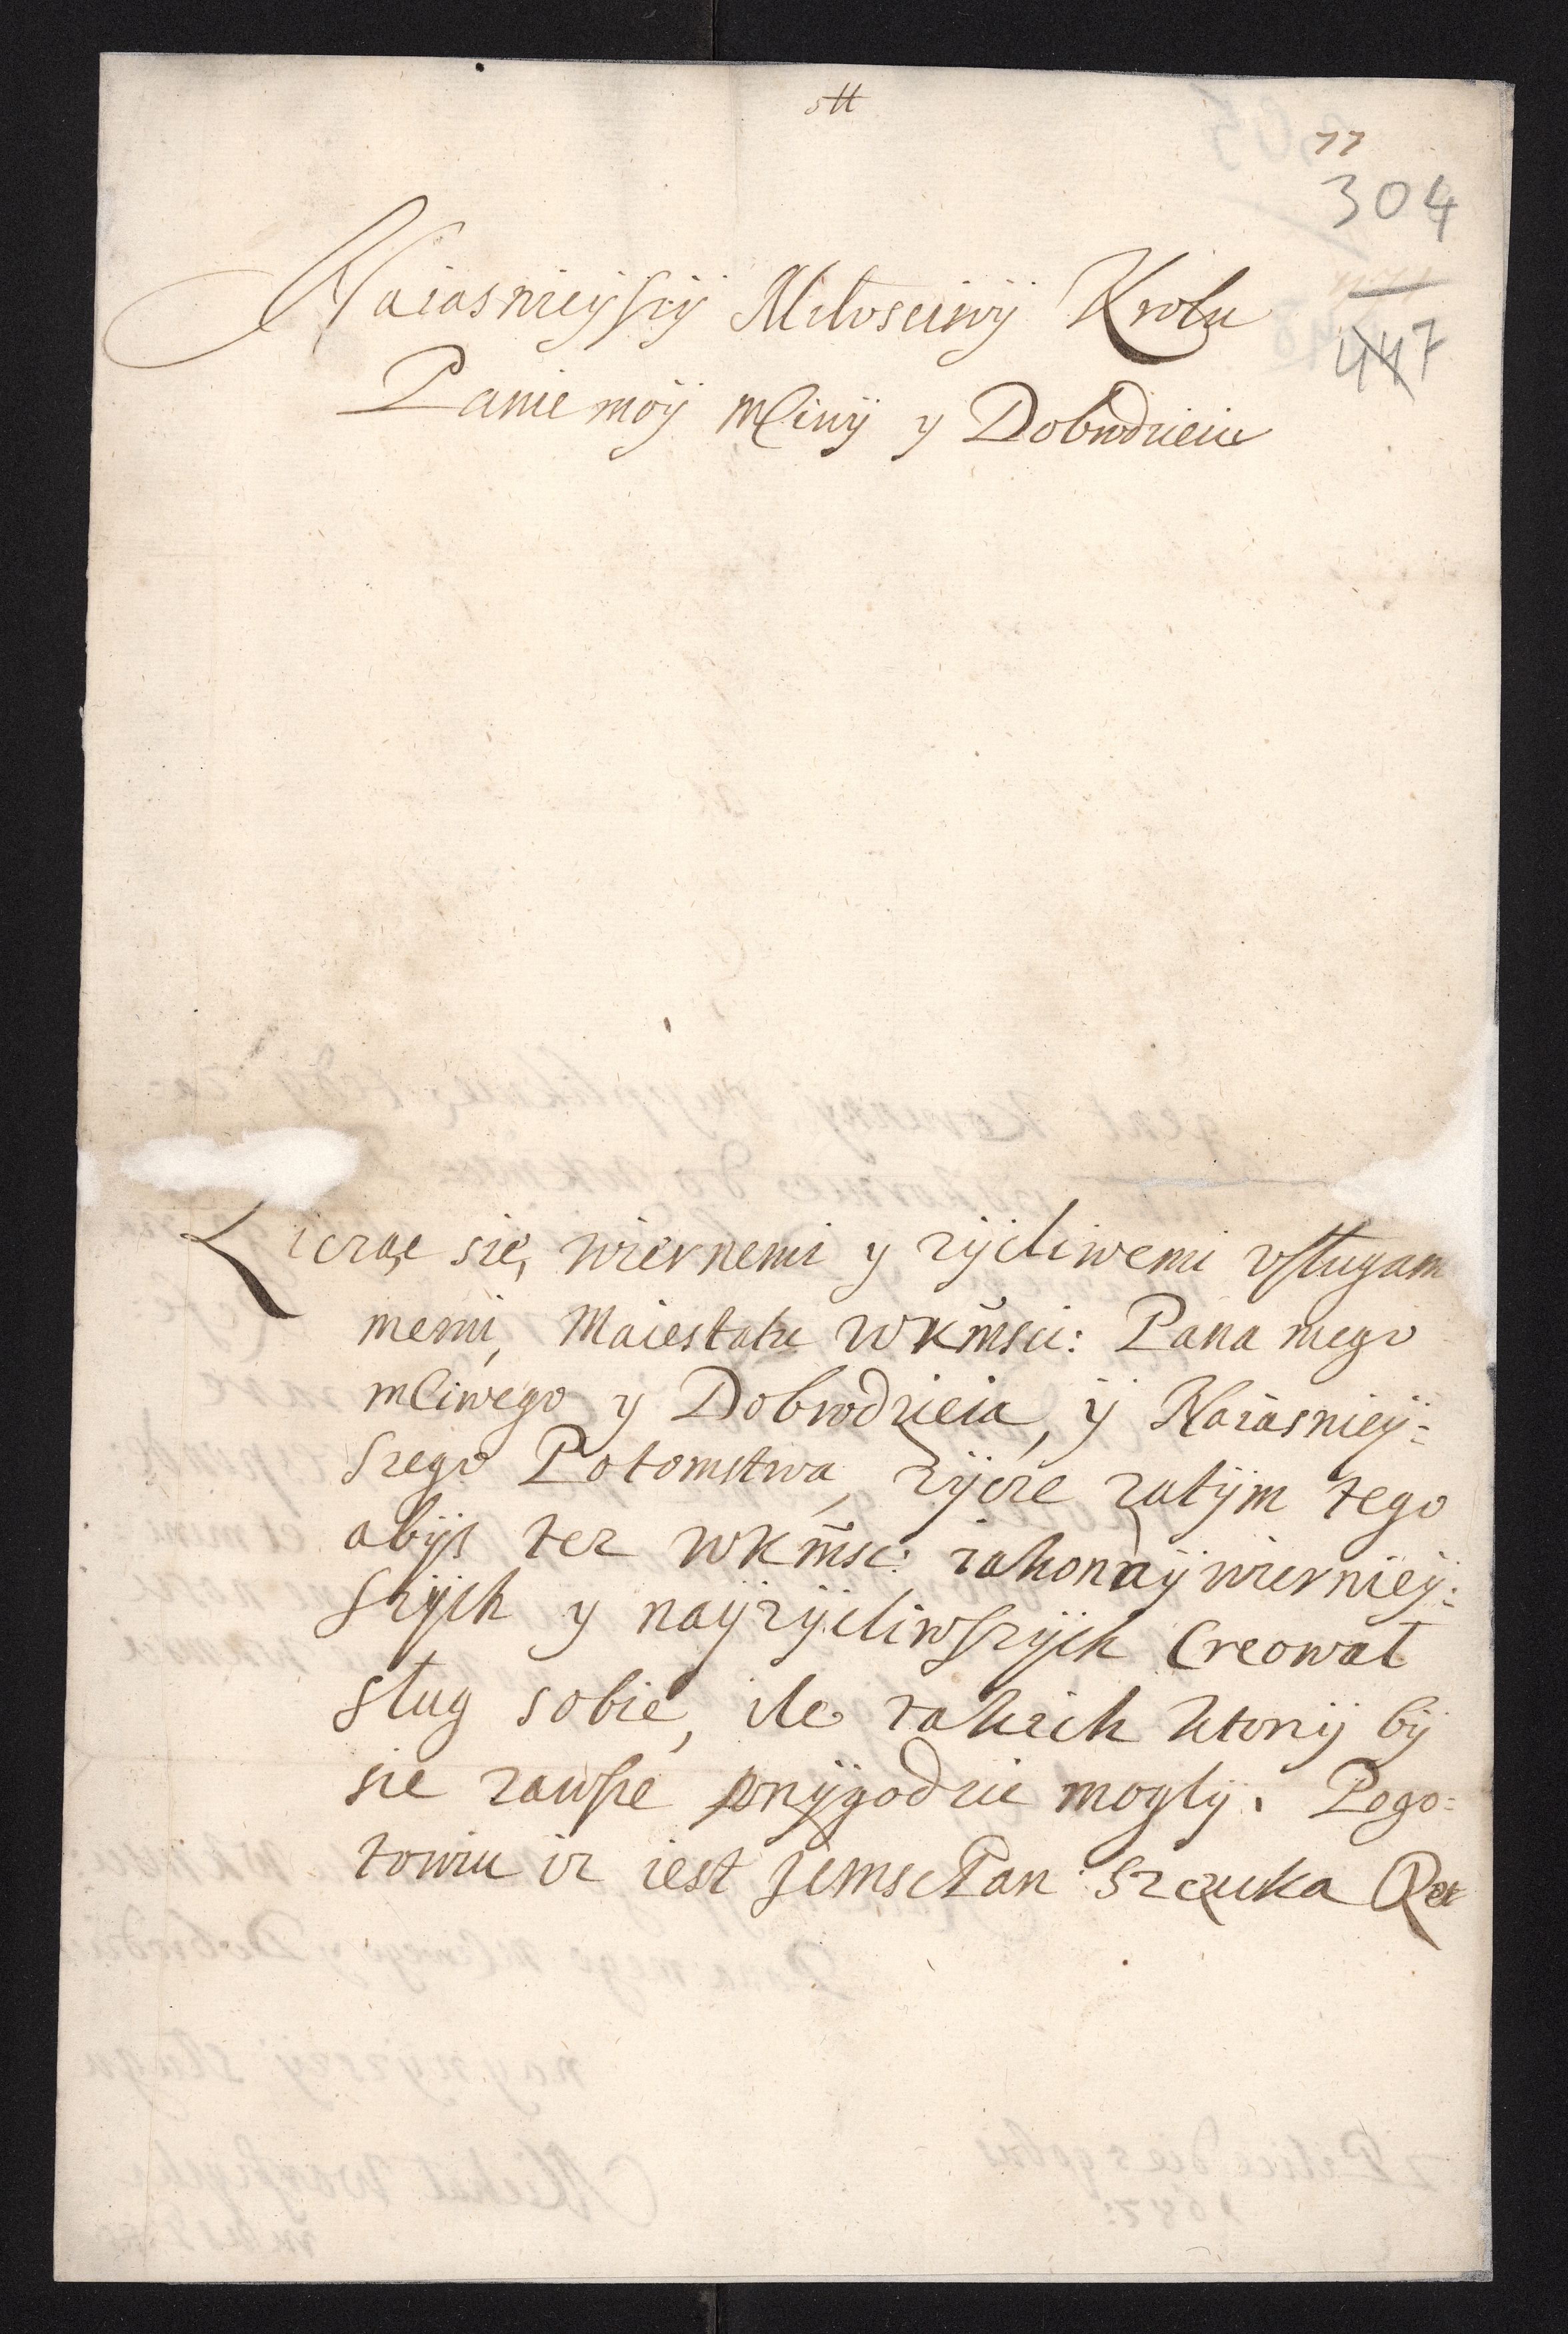 77
304
447
Naiasnieyszÿ Miłosciwÿ Krolu
Panie moÿ mCiwÿ y Dobrodzieiu
Liczac się, wiernemi y zÿcliwemi vsługam
memi, Maiestatu WKmsci: Pana mego
mCiwego y Dobrodzieia, ÿ Naiasnieÿ=
szego Potomstwa, zÿcze zatÿm tego
abÿs tez WKmsc: iako naÿwiernieÿ=
szÿch y naÿzÿcliwszÿch Creował
sług sobie, ile takich ktorÿ bÿ
sie zawsze przÿgodzic moglÿ. Pogo=
towiu iz iest JeMsc Pan Szczuka Re